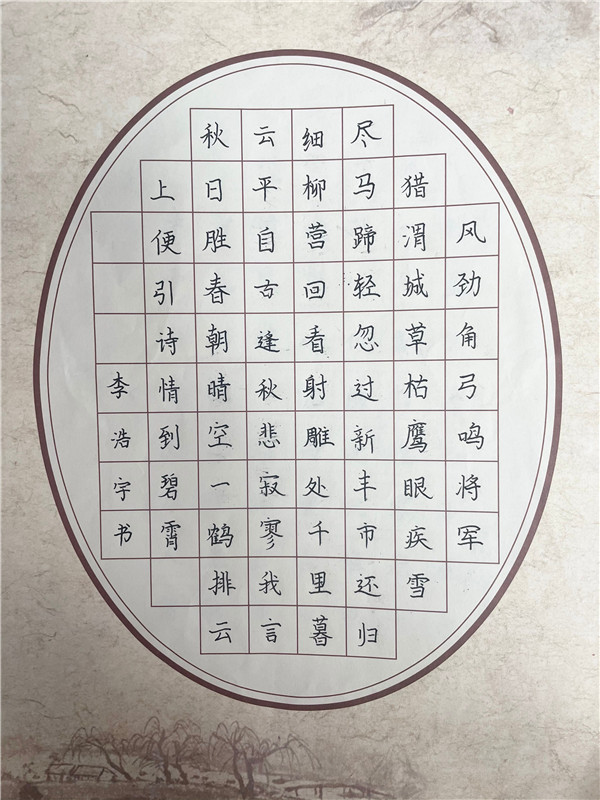 风劲角弓鸣将军
猎渭城草枯鹰眼疾雪
尽马蹄轻忽过新丰市还归
细柳营回看射雕处千里暮
云平自古逢秋悲寂寥我言
秋日胜春朝晴空一鹤排云
上便引诗情到碧霄
李浩宇书